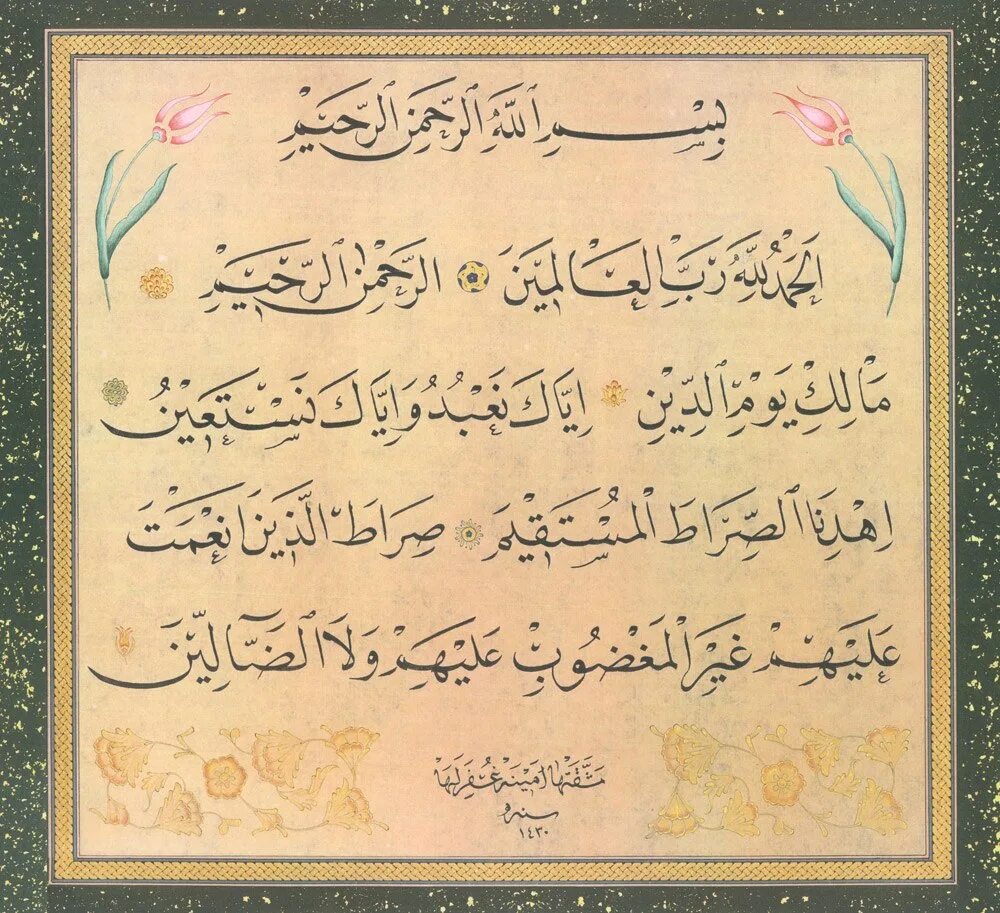 بِسْمِ اللَّهِ الرَّحْمَنِ الرَّحِيمِ
الْحَمْدُ لِلَّهِ رَبِّ الْعَالَمِينَ الرَّحْمٰنِ الرَّحِيمِ
مَالِكِ يَوْمِ الدِّينِ اِيَّاكَ نَعْبُدُ وَاِيَّاكَ نَسْتَعِينُ
اِهْدِنَا الصِّرَاطَ الْمُسْتَقِيمَ صِرَاطَ الَّذِينَ اَنْعَمْتَ
عَلَيْهِمْ غَيْرِ الْمَغْضُوبِ عَلَيْهِمْ وَلَا الضَّآلِّينَ
مَشَّقَتْهَا امينه غُفِرَ لَهَا
سنه
١٤٣٠